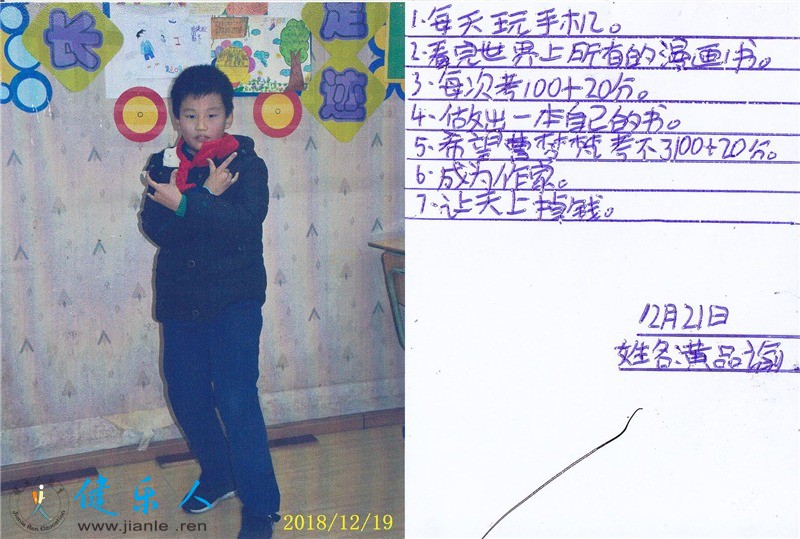 长
足
迹
1.每天玩手机。
2.看完世界上所有的漫画书。
3.每次考100+20分。
4.做出一本自己的书。
5.希望曹梦梵考不了100+20分。
6.成为作家。
7.让天上掉钱。
12月21日
姓名:黄品谕
健乐人
www.jianle.ren
2018/12/19